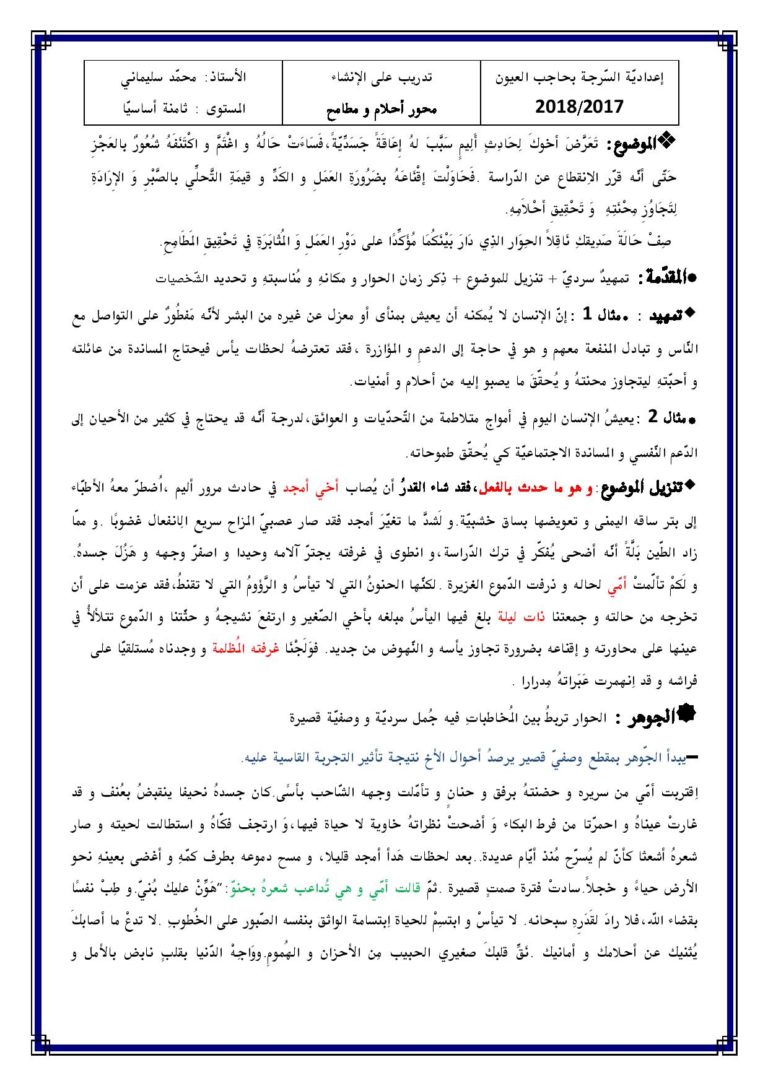 إعداديّة السّرجة بحاجب العيون
2018/2017
تدريب على الإنشاء
محور أحلام و مطامح
الأستاذ: محمّد سليماني
المستوى : ثامنة أساسيّا
❖الموضوع: تَعَرَّضَ أخوكَ لِحَادِثٍ أَلِيمٍ سَبَّبَ لهُ إعَاقَةً جَسَدِّيَّةً،فَسَاءَتْ حَالُهُ و اغْتَمَّ و اكْتَنَفَهُ شُعُورٌ بالعَجْزِ
حَتَّى أنَّه قرّر الاِنقطاع عن الدّراسة .فَحَاوَلْتَ إقْنَاعَهُ بضَرُورَةِ العَمَلِ و الكَدِّ و قيمَةِ التَّحلِّي بالصَّبْرِ وَ الإرَادَةِ
لِتَجَاوُزِ مِحْنَتِهِ وَ تَحْقِيقِ أحْلاَمِهِ.
صِفْ حَالَةَ صَدِيقكِ نَاقِلاً الحِوَار الذِي دَارَ بَيْنَكُمَا مُؤَكِّدًا على دَوْرِ العَمَلِ وَ الْمُثَابَرَةِ في تَحْقِيقِ المَطَامِحِ.
●المقدّمة: تمهيدٌ سرديّ + تنزيل للموضوع + ذِكر زمان الحوار و مكانهِ و مُناسبتهِ و تحديد الشّخصيات
◆تمهيد : •مثال 1 :إنّ الإنسان لا يُمكنه أن يعيش بمنأى أو معزل عن غيره من البشر لأنّه مَفطُورٌ على التواصل مع
النّاس و تبادل المنفعة معهم و هو في حاجة إلى الدعم و المؤازرة ،فقد تعترضهُ لحظات يأس فيحتاج المساندة من عائلته
و أحبّتهِ ليتجاوز محنتهُ و يُحقّقَ ما يصبو إليه من أحلام و أمنيات.
•مثال 2 :يعيشُ الإنسان اليوم في أمواج متلاطمة من التّحدّيات و العوائق،لدرجة أنّه قد يحتاج في كثير من الأحيان إلى
الدّعم النّفسي و المساندة الاجتماعيّة كي يُحقّق طموحاته.
◆تنزيل الموضوع:و هو ما حدث بالفعل،فقد شاء القدرُ أن يُصاب أخي أمجد في حادث مرور أليم ،اُضطرّ معهُ الأطبّاء
إلى بتر ساقه اليمنى و تعويضها بساق خشبيّة.و لَشدَّ ما تغيّرَ أمجد فقد صار عصبيّ المزاح سريع الاِنفعال غضوبًا .و ممّا
زاد الطّين بَلَّةً أنّه أضحى يُفكّر في ترك الدّراسة،و انطوى في غرفته يجترّ آلامه وحيدا و اصفرّ وجهه و هَزُلَ جسدهُ.
و لَكَمْ تألّمتْ أمّي لحاله و ذرفت الدّموع الغزيرة .لكنّها الحنونُ التي لا تيأسُ و الرَّؤومُ التي لا تقنطُ،فقد عزمت على أن
تخرجه من حالته و جمعتنا ذات ليلة بلغ فيها اليأسُ مبلغه بأخي الصّغير و ارتفعَ نشيجهُ و حثّتنا و الدّموع تتلألأُ في
عينها على محاورته و إقناعه بضرورة تجاوز يأسه و النّهوض من جديد. فوَلَجْنَا غرفته المُظلمة و وجدناه مُستلقيًا على
فراشه و قد اِنهمرت عَبَراتهُ مِدرارا .
الجوهر : الحوار تربطُ بين المُخاطباتِ فيه جُمل سرديّة و وصفيّة قصيرة
–يبدأ الجّوهر بمقطع وصفيّ قصير يرصدُ أحوال الأخ نتيجة تأثير التجربة القاسية عليه.
اِقتربت أمّي من سريره و حضنتهُ برفق و حنانٍ و تأمّلت وجهه الشّاحب بأسًى.كان جسدهُ نحيفا ينقبضُ بعُنف و قد
غارتْ عيناهُ و احمرّتا من فرط البكاء وَ أضحتْ نظراتهُ خاوية لا حياة فيها،وَ ارتجف فكّاهُ و استطالت لحيته و صار
شعرهُ أشعثا كأنّ لم يُسرّح مُنذ أيّام عديدة..بعد لحظات هَدأ أمجد قليلا، و مسح دموعه بطرف كمّهِ و أغضى بعينهِ نحو
الأرض حياءً و خجلاً.سادتْ فترة صمتٍ قصيرة .ثمّ قالت أمّي و هي تُداعب شعرهُ بحنوّ:"هَوِّنْ عليك بُنيّ.و طِبْ نفسًا
بقضاء الله،فلا رادَ لقَدَرِهِ سبحانه. لا تيأسْ و ابتسِمْ للحياة اِبتسامة الواثق بنفسه الصّبور على الخُطوبِ .لا تدعْ ما أصابكَ
يُثنيك عن أحلامك و أمانيك .نقِّ قلبكَ صغيري الحبيب مِن الأحزان و الهُموم.ووَاجِهْ الدّنيا بقلبٍ نابض بالأمل و